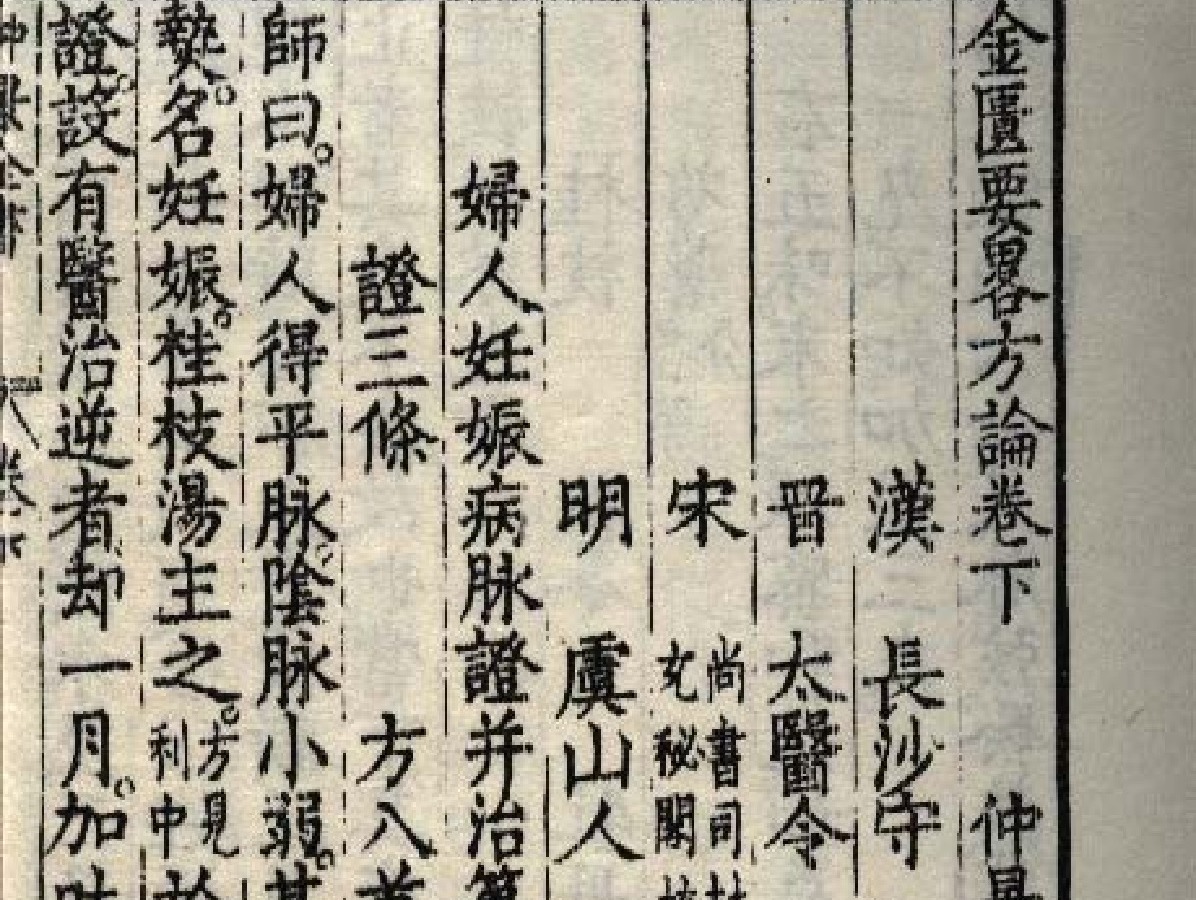 金匱要畧方論卷下 仲景
漢 長沙守
晋 太醫令
宋 尚書司
充秘閣校
明 虞山人
婦人妊娠病脉證并治第
證三條 方八首
師曰。婦人得平脉。陰脉小弱。其
名妊娠。桂枝湯主之。方見
利中
證。設有醫治逆者却一月。加吐